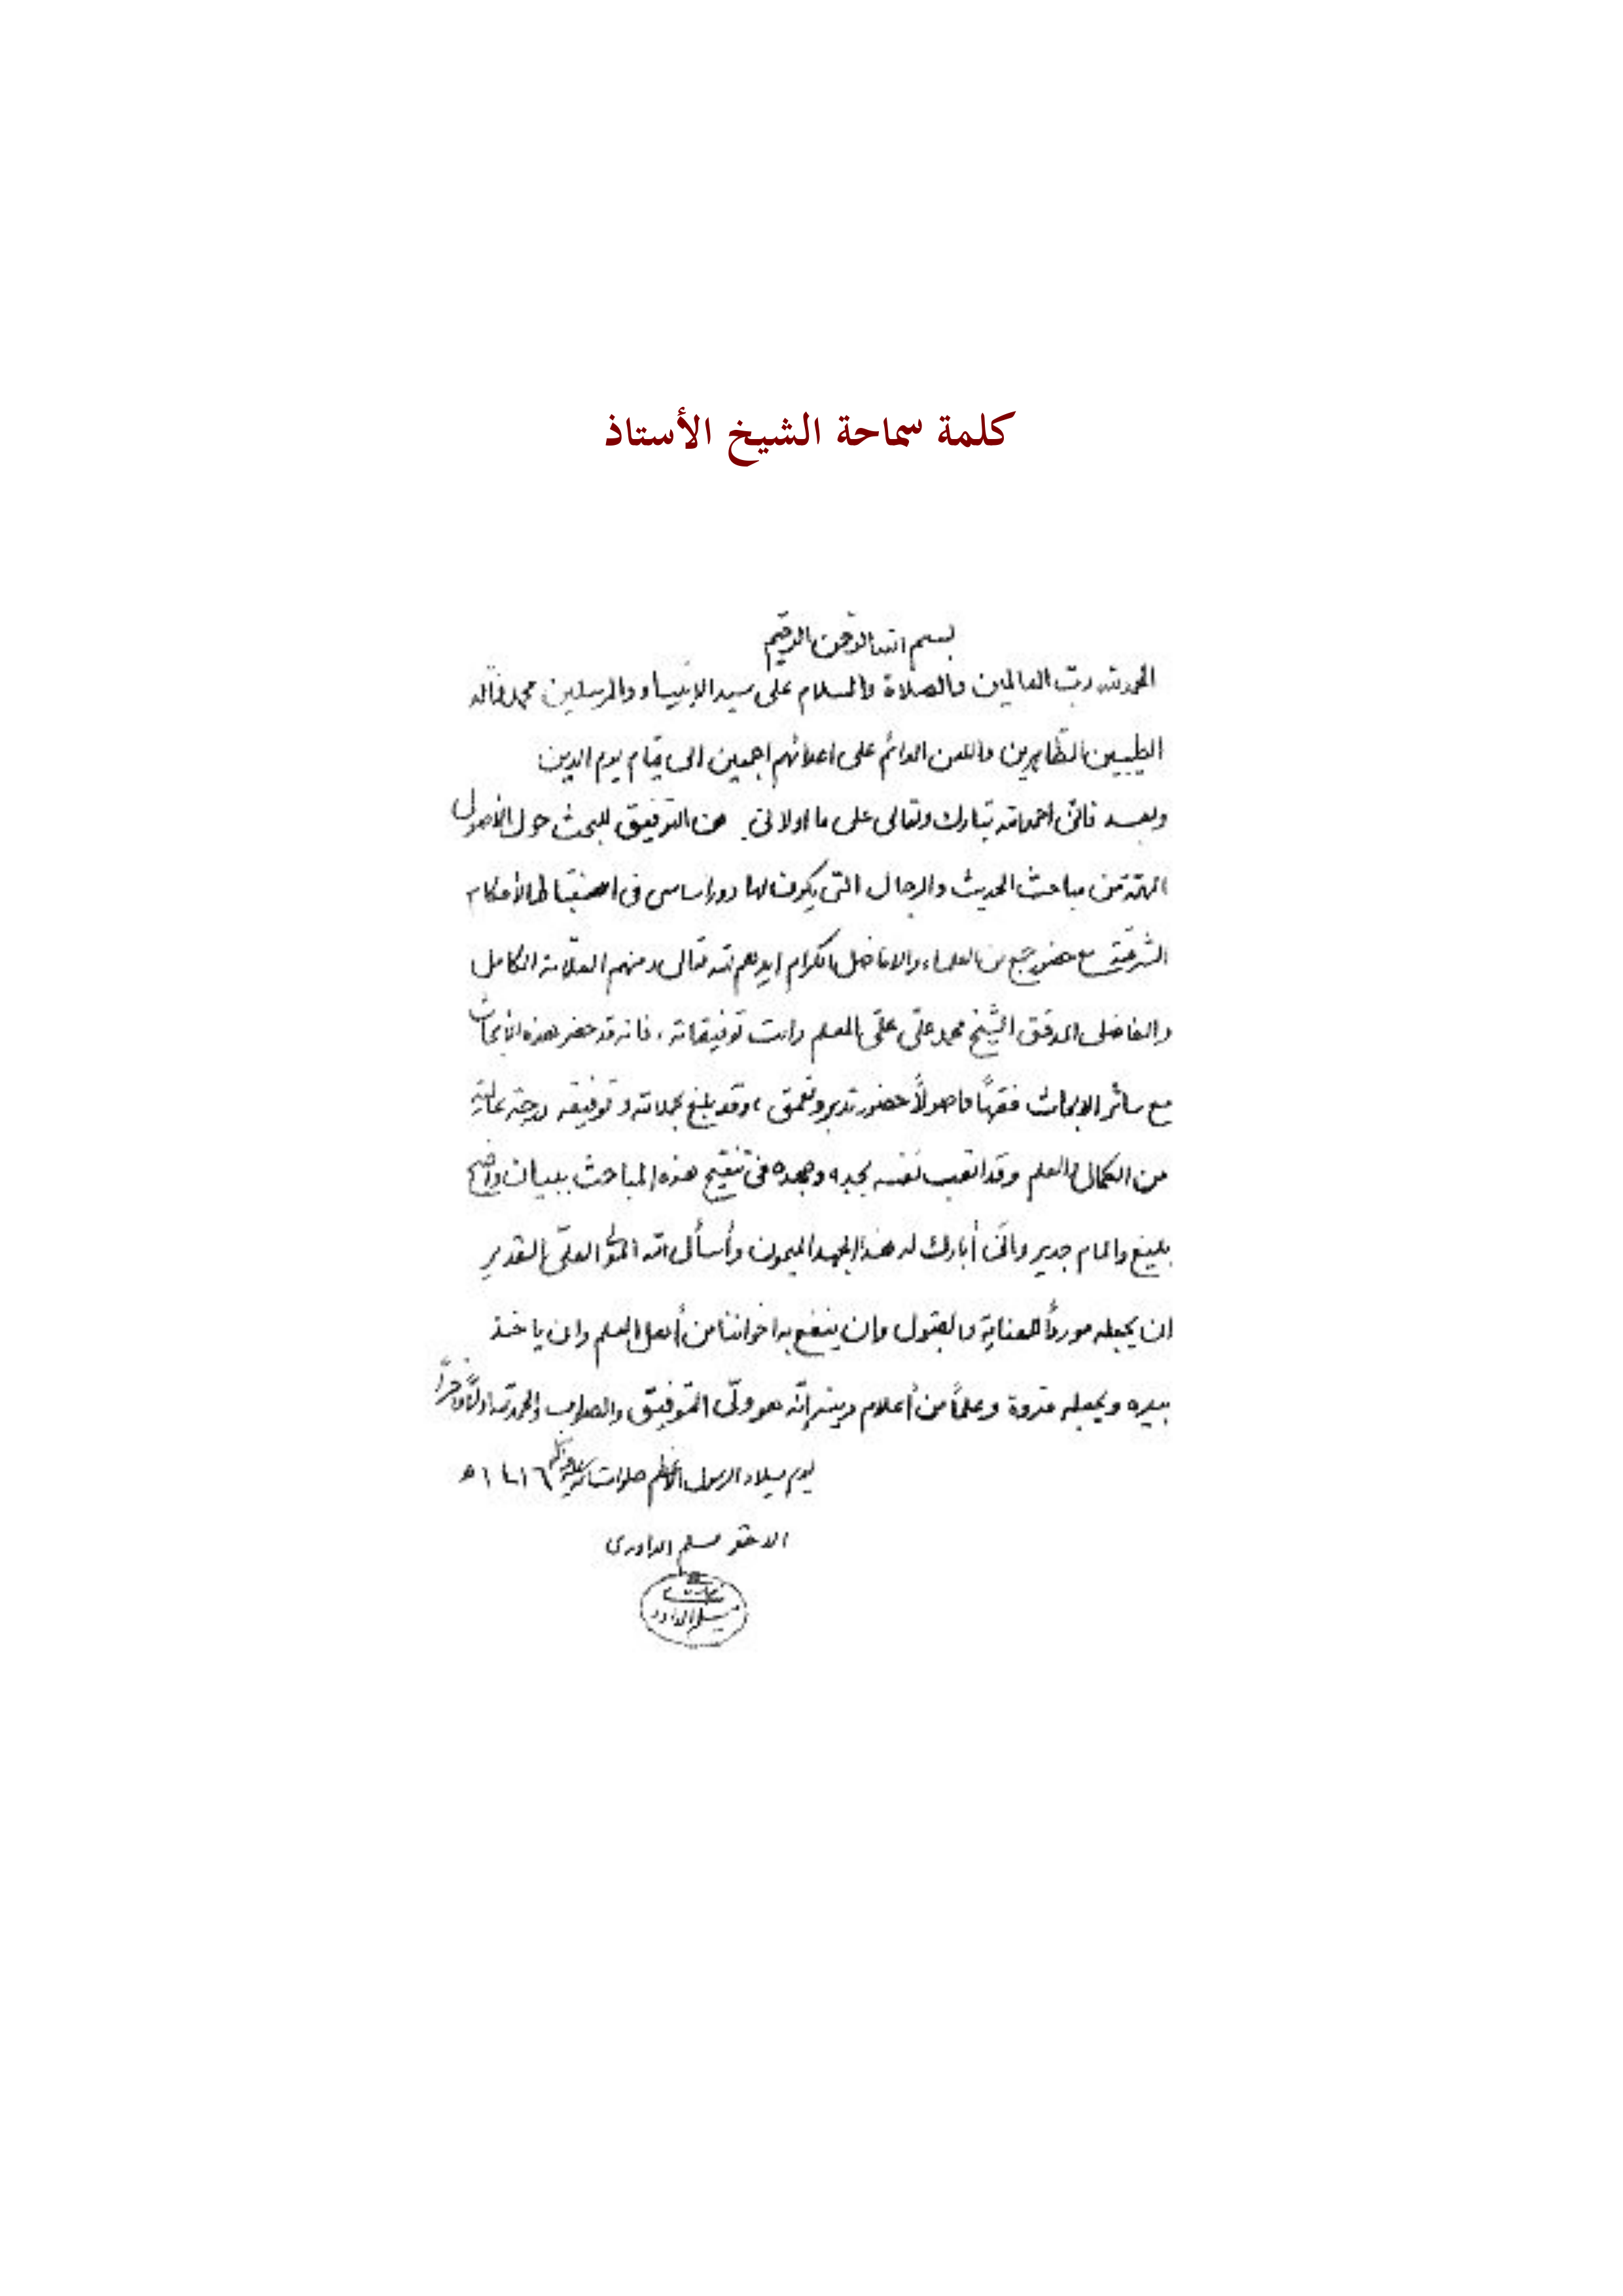 كلمة سماحة الشيخ الأستاذ
بسم الله الرحمن الرحيم
الحمد لله رب العالمين والصلاة والسلام على سيد الانبياء والمرسلين محمد وآله
الطيبين الطاهرين واللعن الدائم على اعدائهم اجمعين الى قيام يوم الدين
وبعد فانّي احمد الله تبارك وتعالى على ما اولاني من التوفيق للبحث حول الأصول
المهمّة من مباحث الحديث والرجال التي يكون لها دور اساسي في استنباط الأحكام
الشرعيّة مع حضور جمع من العلماء والافاضل الكرام ايدهم الله تعالى ومنهم العلّامة الكامل
والفاضل المدقق الشّيخ محمد علي علّي المعلم دامت توفيقاته ، فانه قد حضر هذه الأبحاث
مع سائر الابحاث فقهاً واصولاً حضور تدبر وتعمق ، وقد بلغ بحمد الله وتوفيقه درجة عالية
من الكمال والعلم وقد اتعب نفسه بجده وجهده في تنقيح هذه المباحث ببيان واضح
بليغ والمام جدير وانّي أبارك له هذا الجهد الميمون وأسأل الله المولى العليّ القدير
ان يجعله مورداً للعناية والقبول وان ينفع به اخواننا من أهل العلم وان ياخذ
بيده ويجعله قدوة وعلماً من أعلام دينه إنّه هو وليّ التّوفيق والصواب والحمد لله اولاً وآخراً
يوم ميلاد الرسول الأعظم صلوات الله عليه وآله ١٤١٦ هـ
الاحقر مسلم الداوري
مسلم الداوري